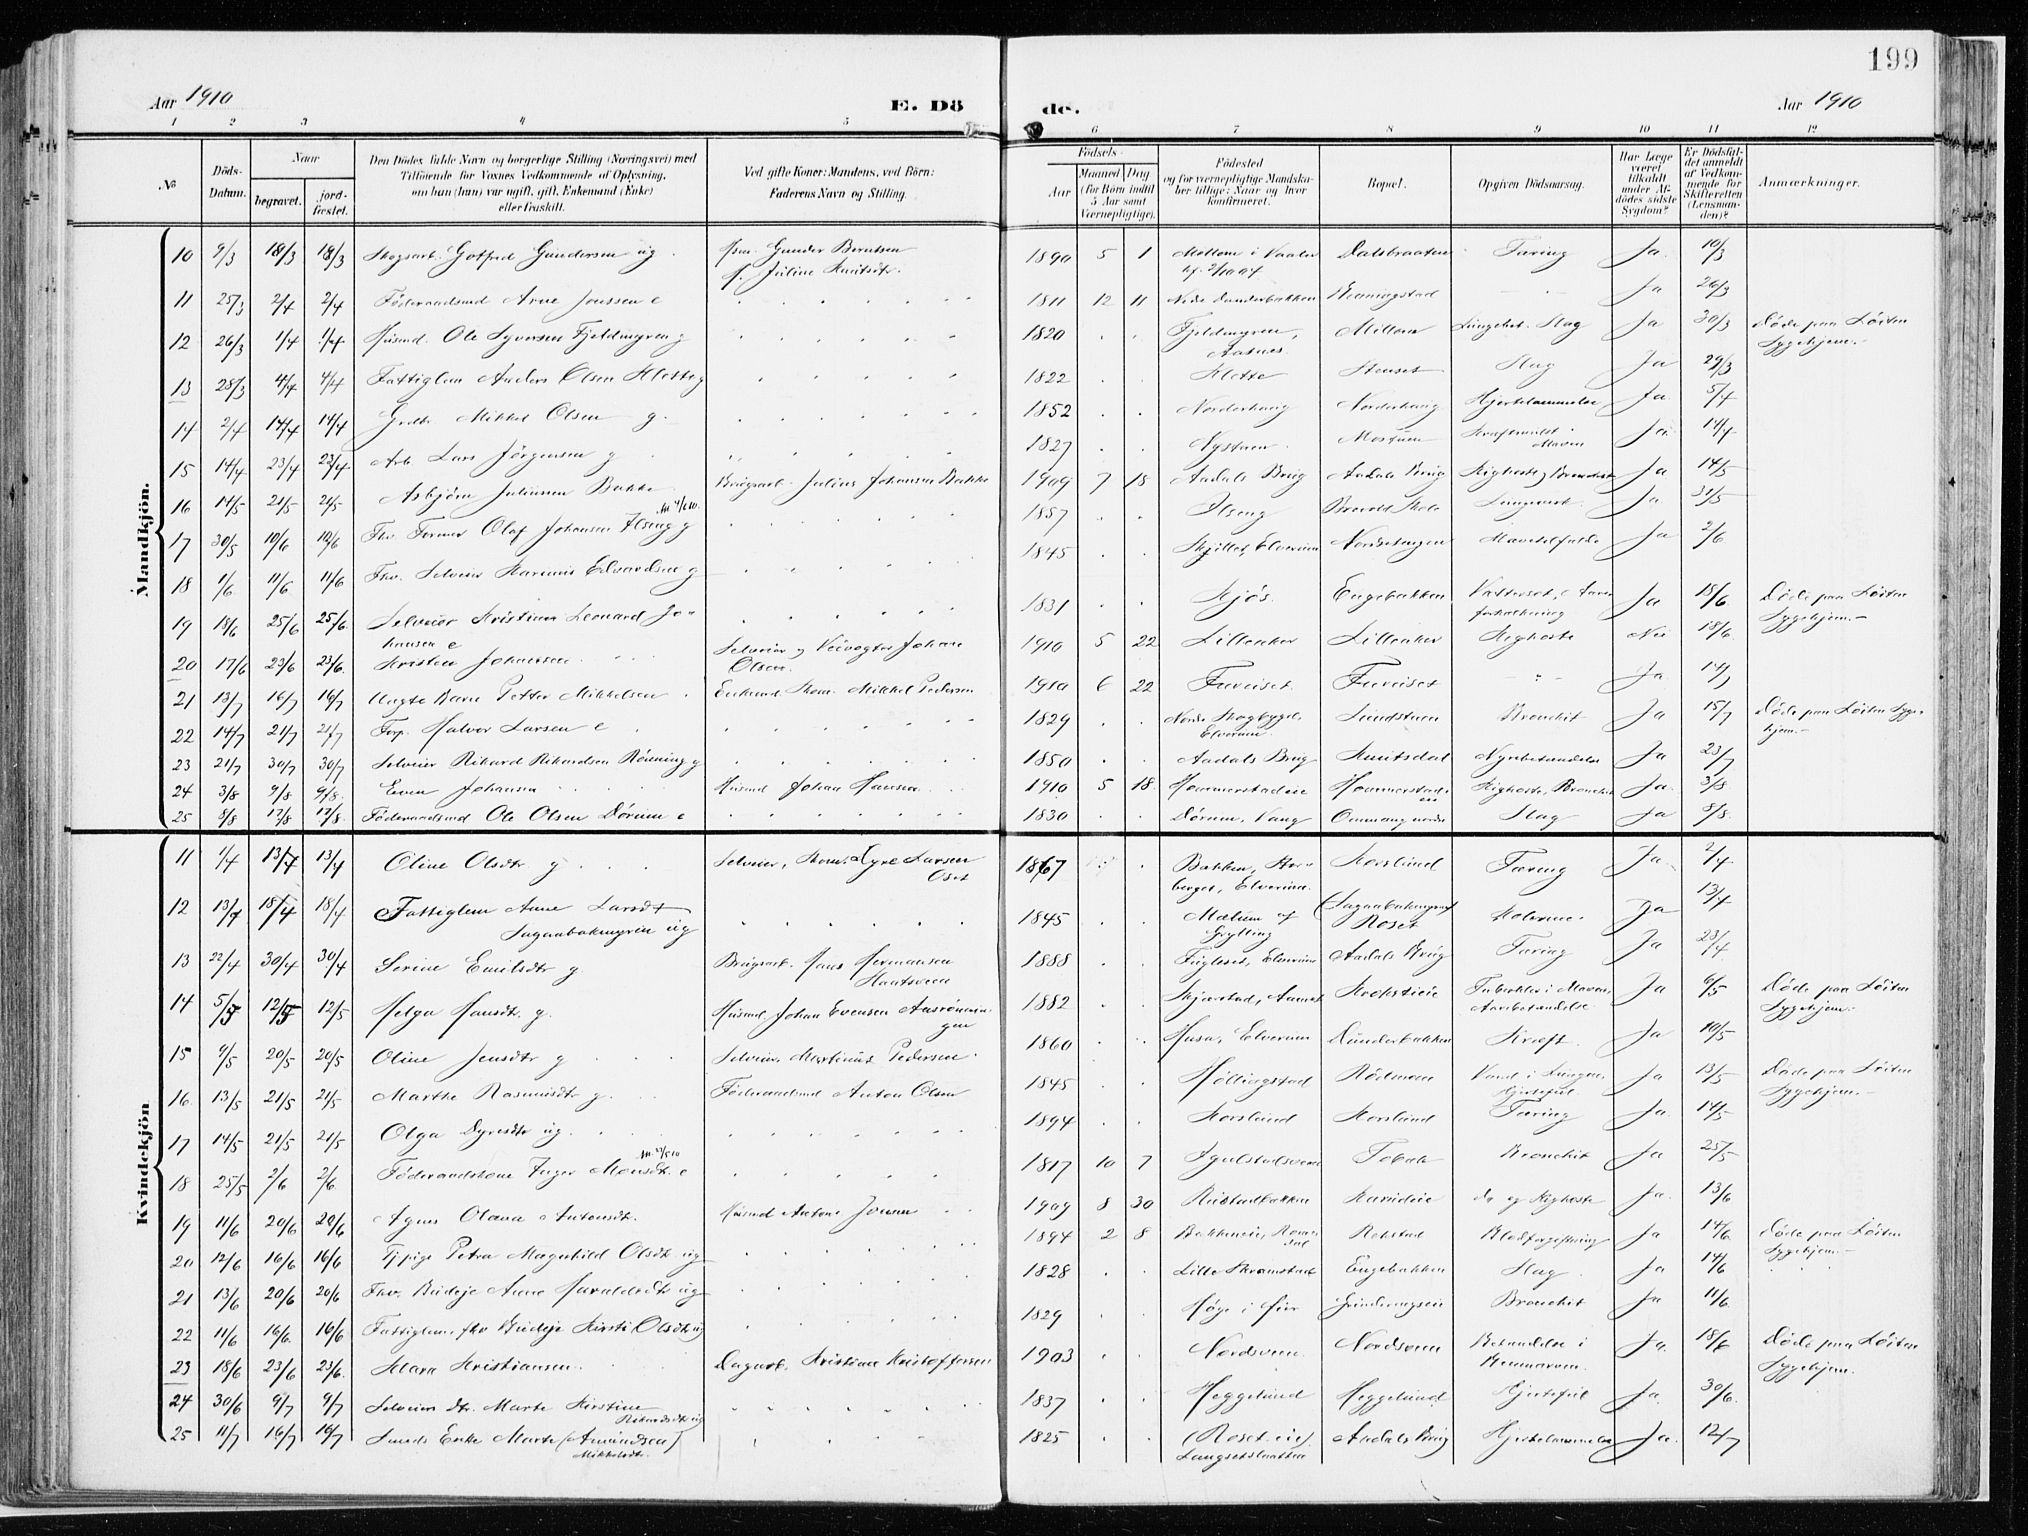 199
Aar 1910 E. Dö de. Aar 1910
1 2 3 4 5 6 7 8 9 10 11 12
No Döds-Datum. Naar begravet. jord-fæstet. Den Dödes fulde Navn og borgerlige Stilling (Næringsvei) med Tilföiende for Voxnes Vedkommende af Oplysning, om han (hun) var ugift, gift, Enkemand (Enke) eller fraskilt. Ved gifte Koner: Mandens, ved Börn: Faderens Navn og Stilling. Födsels- Aar Maaned Dag (for Börn indtil 5 Aar samt Værnepligtige). Födested og for værnepligtige Mandskaber tillige: Naar og hvor konfirmeret. Bopæl. Opgiven Dödsaarsag. Har Læge været tilkaldt under Afdödes sidste Sygdom? Er Dödsfaldet anmeldt af Vedkommende for Skifteretten (Lensmanden)? Anmærkninger.
Mandkjön.
10 9/3 18/3 18/3 Skogsarb. Gotfred Gundersen ug. Hsm. Gunder Berntsen f. Juline Knutsdtr. 1890 5 1 Mellom i Vaaler kf. 2/10 04 Dalsbraaten Tæring Ja 10/3
11 25/3 2/4 2/4 Föderaadsmd Arne Jonssen e 1811 12 11 Nedre Dunderbakken Hemmingstad Ja 26/3
12 26/3 1/4 1/4 Husmd. Ole Syversen Fjeldmyren g 1820 Fjeldmyren, Aasnes. Millom Lungebet. Slag Ja 30/3 Döde paa Löiten Sygehjem.-
13 28/3 4/4 4/4 Fattiglem Anders Olsen Klette g 1822 Klette Stenset Slag Ja 29/3
14 2/4 14/4 14/4 Grdbr. Mikkel Olsen g. 1852 Norderhaug Norderhaug Hjertelammelse Ja 5/4
15 14/4 23/4 23/4 Arb. Lars Jörgensen g 1827 Nystuen Mostuen Kræftsvulst i Maven Ja 14/4
16 14/5 21/5 21/5 Asbjörn Juliussen Bakke Brugsarb. Julius Johansen Bakke 1909 7 18 Aadals Brug Aadals Brug Kighoste, Bronchit Ja 14/5
17 30/5 10/6 10/6 Fhv. Former Olaf Johansen Ilseng g 1857 Ilseng Brovold Skole Ja 31/5
18 1/6 11/6 11/6 Fhv. Selveier Karinus Edvardsen g 1845 Skjöllet, Elverum Ja 2/6
19 18/6 25/6 25/6. Selveier Kristian Leonard Johansen e 1831 Kjös. Engebakken Vattersot, Aareforkalkning Ja 18/6 Döde paa Löiten Sygehjem.-
20 17/6 23/6 23/6. Kristen Johansen Selveier, Veivogter Johan Olsen. 1910 5 22 Lilleaker Lilleaker Kighoste Nei 18/6.
21 13/7 16/7 16/7 Uægte Barn Petter Mikkelsen Enkemd Skom. Mikkel Pedersen 1910 6 22 Furuset Furuset Ja. 14/7
22 14/7 21/7 21/7 Forp. Halvor Larsen e 1829 Nordre Skogbygd, Elverum Lundstuen Bronchit Ja 15/7 Döde paa Löiten Sygehjem.-
23 21/7 30/7 30/7 Selveier Rikard Rikardsen Rönning g 1850 Aadals Brug Knutsdal Nyrebetændelse Ja 23/7
24 3/8 9/8 9/8. Even Johansen Husmd Johan Hansen 1910 5 18 Hommerstadeie Hommerstadeie Kighoste, Bronchit Ja 3/8
25 8/8 17/8 17/8. Föderaadsmd Ole Olsen Dörum e 1830 Dörum, Vang Ommang nordre Slag Ja 8/8.
Kvindekjön
11 1/4 13/4 13/4 Oline Olsdtr g Selveier, Skom. Dyre Larsen Oset 1867 Bakken, Storberget, Elverum. Korslund Tæring Ja 2/4
12 13/4 18/4 18/4 Fattiglem Anne Larsdtr Sagaabakmyren ug 1845 Mælum af Grylling (Sagaabakmyren) Roset Ja 13/4
13 22/4 30/4 30/4 Serine Emilsdtr g Brugsarb. Hans Hermansen 1888 Fugleset, Elverum Aadals Brug Tæring Ja 23/4
14 5/5 12/5 12/5 Helga Hansdtr. g. Husmd. Johan Evensen Aasrönningen 1882 Krokstieie Tuberkler i Maven, Aarebetændelse Ja 6/5 Döde paa Löiten Sygehjem.-
15 9/5 20/5 20/5 Oline Jensdtr g Selveier Martinus Pedersen 1860 Husa, Elverum Dunderbakken Kræft Ja 10/5
16 13/5 21/5 21/5 Marthe Rasmusdtr g. Föderaadsmd Anton Olsen 1845 Höllingstad Rödmoen Vand i Lungen, Hjertefeil Ja 13/5 Döde paa Löiten Sygehjem.-
17 14/5 21/5 21/5 Olga Dyresdtr ug. 1894 Korslund Korslund Tæring Ja 14/5
18 25/5 2/6 2/6 Föderaadskone Inger Monsdtr. e 1817 10 7 Igulstadsveen Bronchit Ja 25/5
19 11/6 20/6 20/6 Agnes Olava Antonsdtr. Husmd Anton Jonsen 1909 8 30 Rustadbakken do og Kighoste Ja 13/6
20 12/6 16/6 16/6 Tjpige Petra Magnhild Olsdtr ug 1894 2 8 Bakkeneie, Romedal Rokstad Blodforgiftning Ja 14/6 Döde paa Löiten Sygehjem.-
21 13/6 20/6 20/6 Fhv. Budeje Anne Haraldsdtr ug 1828 Lille Kramstad Engebakken Slag Ja 14/6
22 11/6 16/6. 16/6 Fattiglem, fhv Budeje Kirsti Olsdtr ug 1829 Grinderengseie Bronchit Ja 11/6.
23 18/6 23/6 23/6. Klara Kristiansen Dagarb. Kristian Kristoffersen 1903 Nordsveen Nordsveen Betændelse i Benmarven. Ja 18/6 Döde paa Löiten Sygehjem.
24 30/6 9/7 9/7 Selveier dtr. Marte Kirstine Rikardsdtr ug 1837 Heggelund Heggelund Hjertefeil Ja. 30/6
25 11/7 16/7 16/7 Smeds Enke Marte (Amundsen) Mikkelsdtr. 1825 (Roset eie) Langsetslaatten Aadals Brug Hjertelammelse Ja 12/7